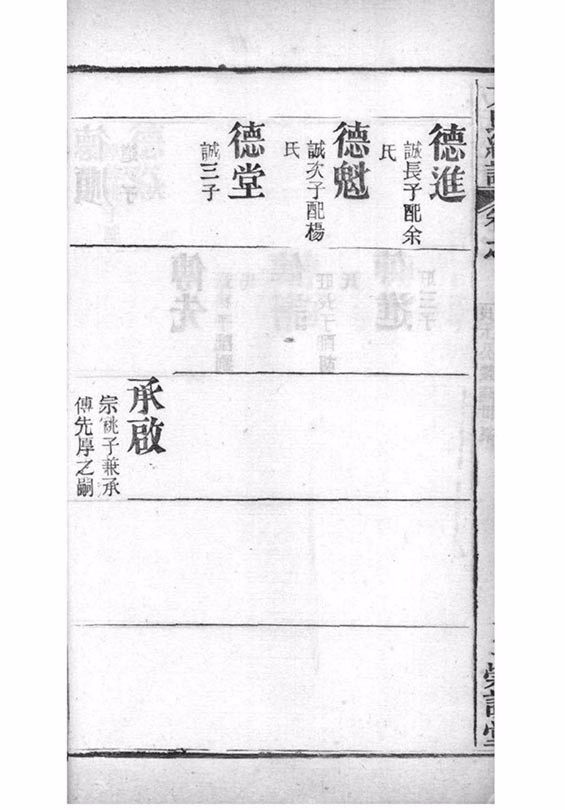 德進
誠長子配余
氏
德魁
誠次子配楊
氏
德堂
誠三子
承啟
宗祧子兼承
傅先厚之嗣